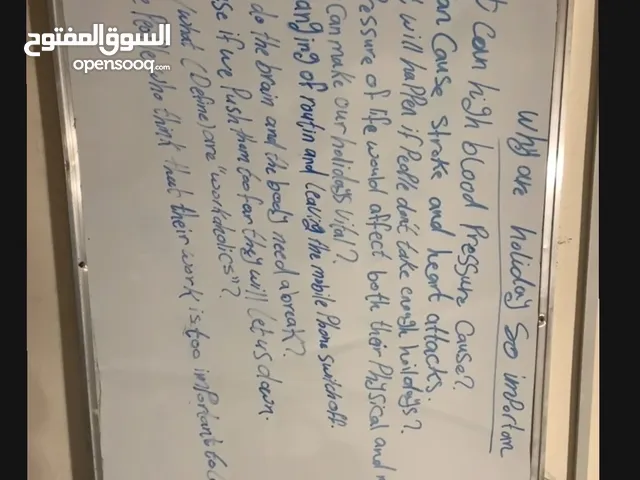 السوق المفتوح
opensooq.com
Why are holiday so importan
Can high blood Pressure Cause?
Cause stroke and heart attacks.
will happen if People don't take enough holidays?
Pressure of life would affect both their Physical and
Can make our holidays vital?
anging of routin and leaving the mobile Phone switch off.
do the brain and the body need a break?
se if we Push them too far they will let us down.
what (Define) are "workaholics"?
People who think that their work is too important to